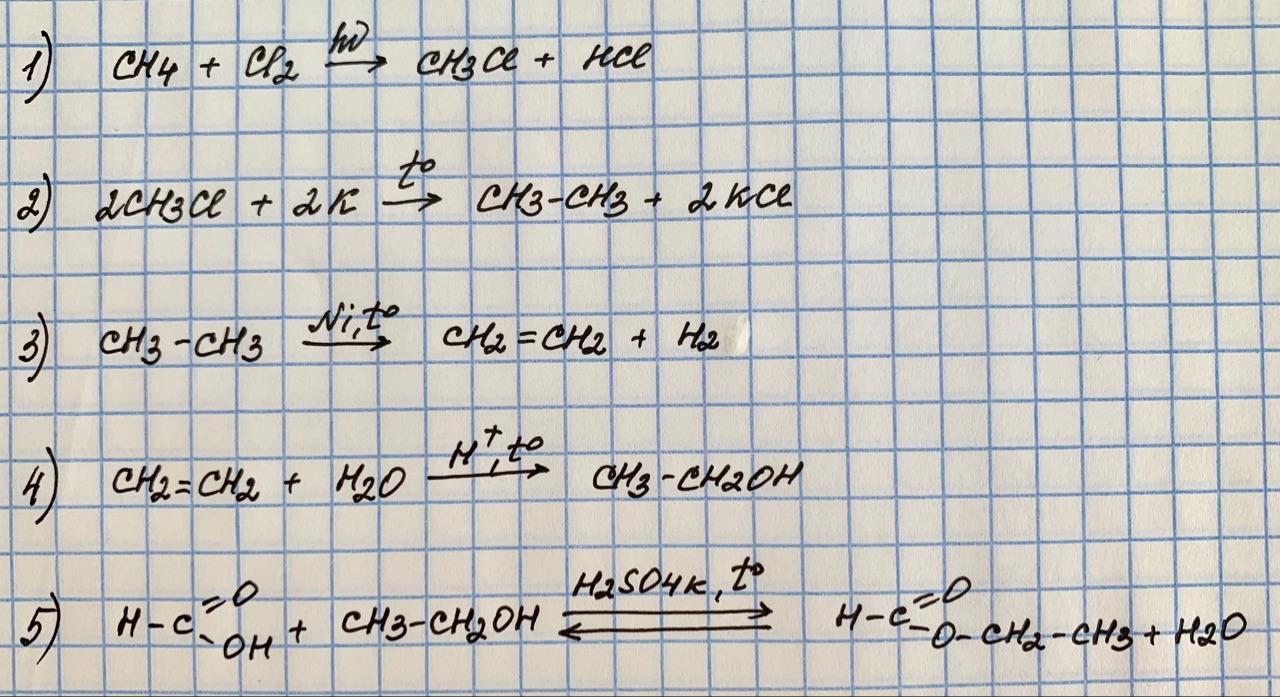 1) CH4 + Cl2 hν → CH3Cl + HCl
2) 2CH3Cl + 2K t° → CH3-CH3 + 2KCl
3) CH3-CH3 Ni, t° → CH2=CH2 + H2
4) CH2=CH2 + H2O H+, t° → CH3-CH2OH
5) H-C=O-OH + CH3-CH2OH H2SO4к, t° ⇌ H-C=O-O-CH2-CH3 + H2O